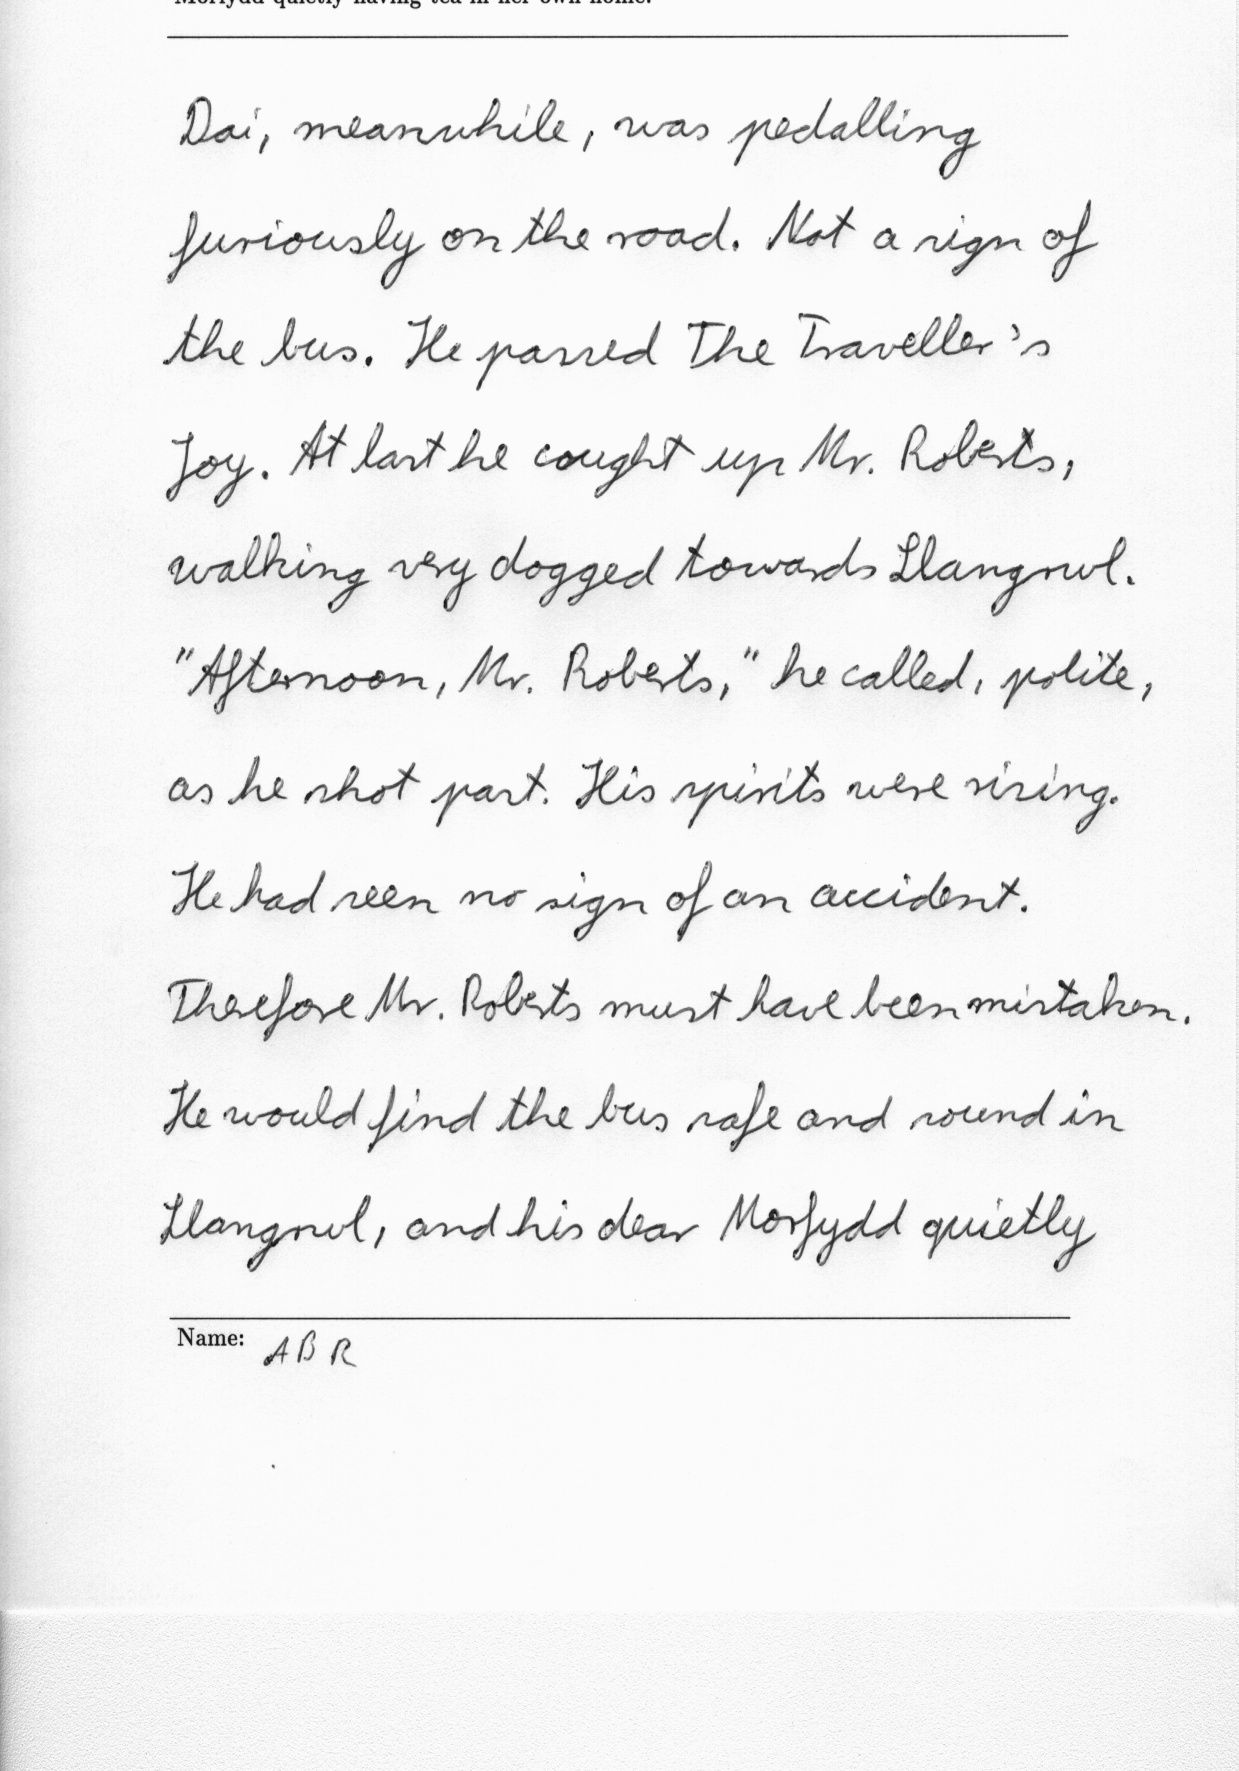 Morfydd quietly having tea in her own home.
Dai, meanwhile, was pedalling
furiously on the road. Not a sign of
the bus. He passed The Traveller's
Joy. At last he caught up Mr. Roberts,
walking very dogged towards Llangrwl.
"Afternoon, Mr. Roberts," he called, polite,
as he shot past. His spirits were rising.
He had seen no sign of an accident.
Therefore Mr. Roberts must have been mistaken.
He would find the bus safe and sound in
Llangrwl, and his dear Morfydd quietly
Name: ABR